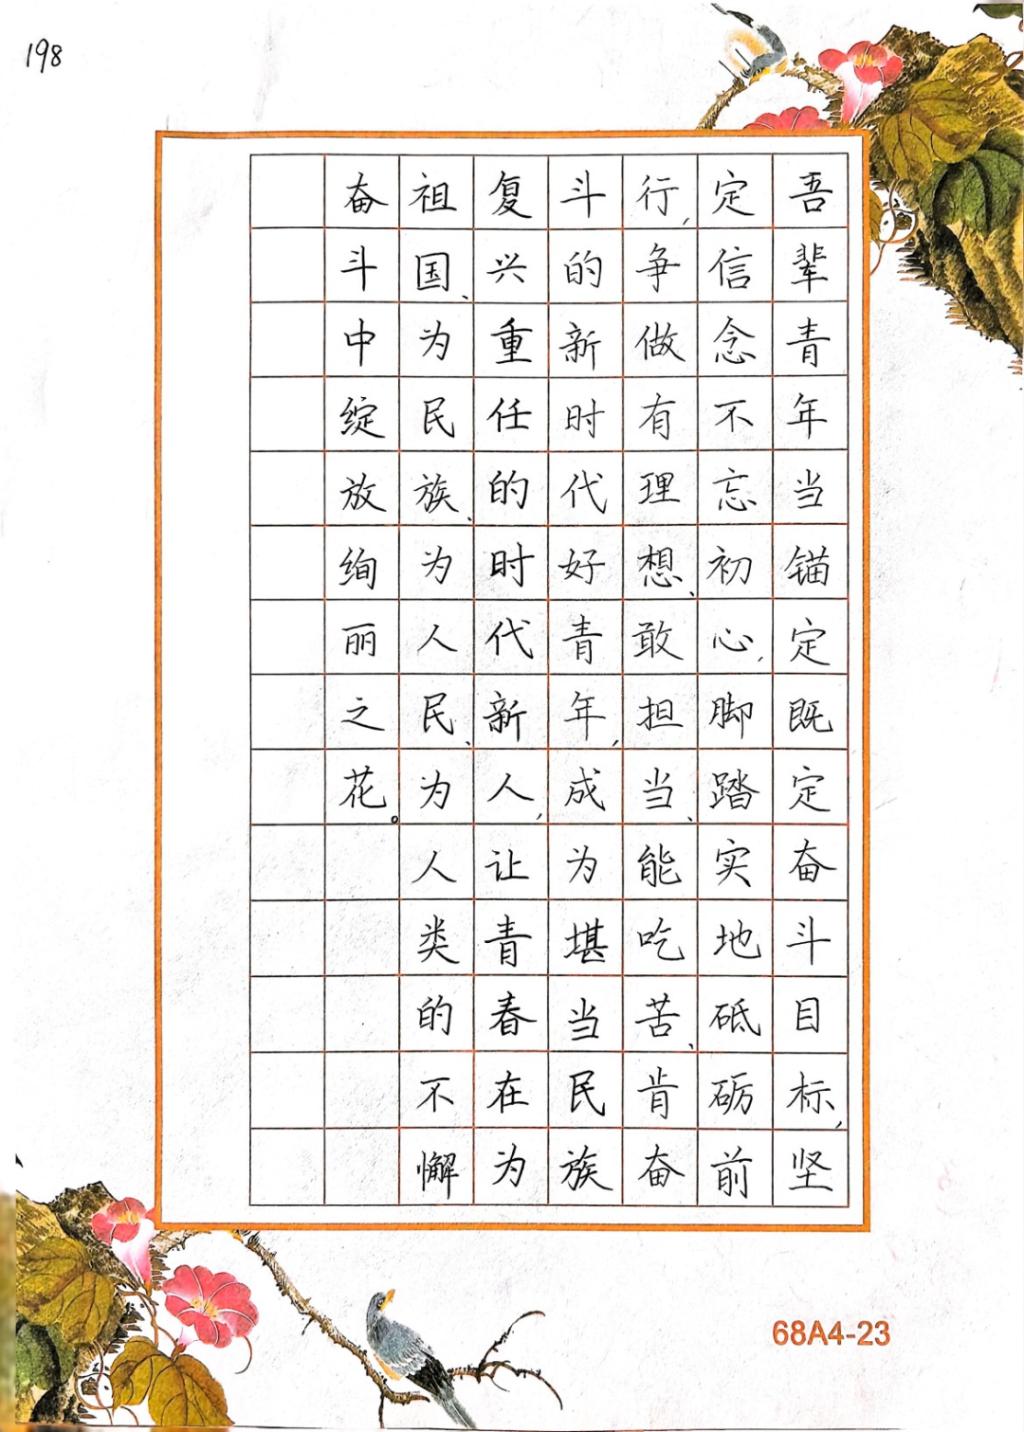 198
吾辈青年当锚定既定奋斗目标,坚
定信念不忘初心,脚踏实地砥砺前
行,争做有理想、敢担当、能吃苦、肯奋
斗的新时代好青年,成为堪当民族
复兴重任的时代新人,让青春在为
祖国、为民族、为人民、为人类的不懈
奋斗中绽放绚丽之花。
68A4-23